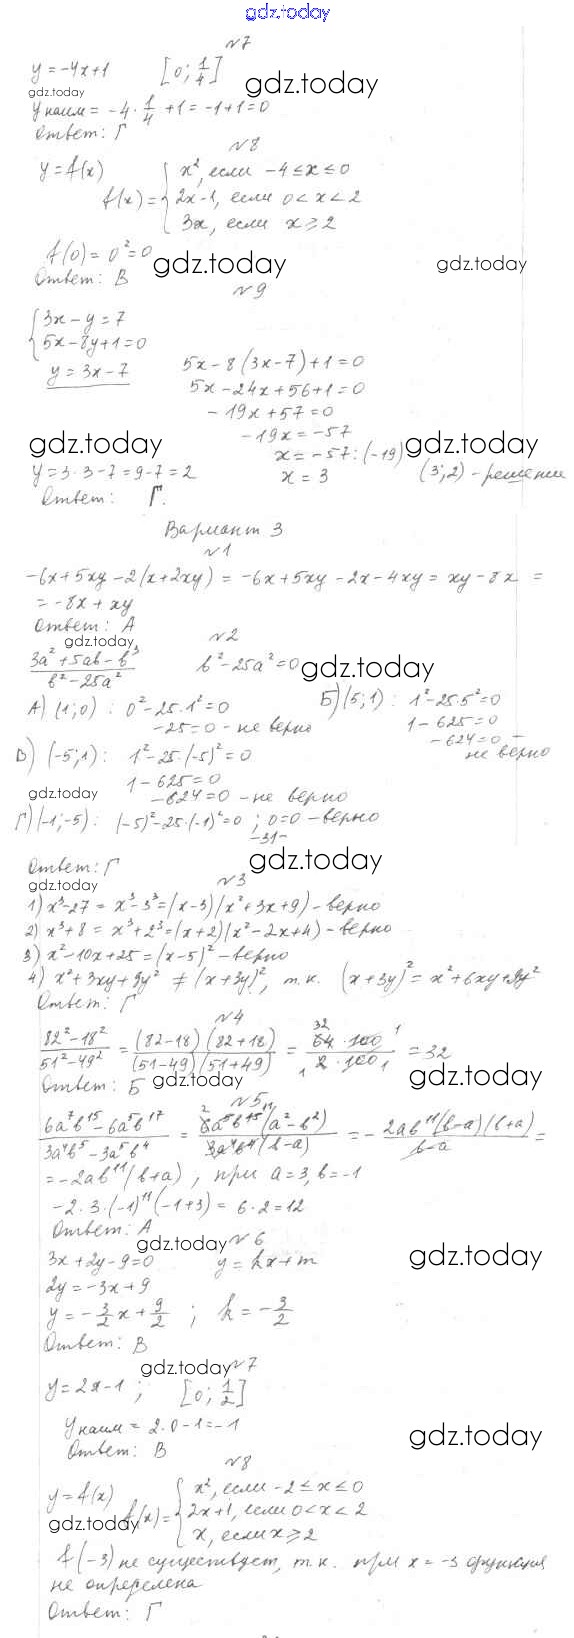 gdz.today
№7
y = -4x+1 [0; 1/4] gdz.today
gdz.today
y наим = -4 · 1/4 + 1 = -1+1 = 0
Ответ: Г
№8
y = f(x) f(x) = { x², если -4 ≤ x ≤ 0
2x-1, если 0 < x < 2
3x, если x ≥ 2
f(0) = 0² = 0
gdz.today gdz.today
Ответ: В
№9
{ 3x - y = 7
5x - 8y + 1 = 0
y = 3x - 7 5x - 8(3x-7) + 1 = 0
5x - 24x + 56 + 1 = 0
-19x + 57 = 0
-19x = -57
gdz.today x = -57 : (-19) gdz.today
y = 3·3 - 7 = 9 - 7 = 2 x = 3 (3; 2) - решение
Ответ: Г.
Вариант 3
№1
-6x + 5xy - 2(x + 2xy) = -6x + 5xy - 2x - 4xy = xy - 8x =
= -8x + xy
Ответ: А
gdz.today №2
(3a² + 5ab - b³)/(b² - 25a²) b² - 25a² = 0 gdz.today
А) (1; 0) : 0² - 25·1² = 0 Б) (5; 1) : 1² - 25·5² = 0
-25 = 0 - не верно 1 - 625 = 0
-624 = 0 -
не верно
В) (-5; 1) : 1² - 25·(-5)² = 0
1 - 625 = 0
gdz.today -624 = 0 - не верно
Г) (-1; -5) : (-5)² - 25·(-1)² = 0 ; 0 = 0 - верно
-31-
gdz.today
Ответ: Г
gdz.today №3
1) x³ - 27 = x³ - 3³ = (x-3)(x² + 3x + 9) - верно
2) x³ + 8 = x³ + 2³ = (x+2)(x² - 2x + 4) - верно
3) x² - 10x + 25 = (x-5)² - верно
4) x² + 3xy + 9y² ≠ (x+3y)², т.к. (x+3y)² = x² + 6xy + 9y²
Ответ: Г
№4
(82² - 18²)/(51² - 49²) = ((82-18)(82+18))/((51-49)(51+49)) = (64 · 100)/(2 · 100) = 32
Ответ: Б gdz.today gdz.today
№5
(6a⁷b¹⁵ - 6a⁵b¹⁷)/(3a⁴b⁵ - 3a⁵b⁴) = (6a⁵b¹⁵(a² - b²))/(3a⁴b⁴(b-a)) = -(2ab¹¹(b-a)(b+a))/(b-a) =
= -2ab¹¹(b+a), при a = 3, b = -1
-2·3·(-1)¹¹(-1+3) = 6·2 = 12
Ответ: А
gdz.today №6 gdz.today
3x + 2y - 9 = 0 y = kx + m
2y = -3x + 9
y = -3/2 x + 9/2 ; k = -3/2
Ответ: В
gdz.today №7
y = 2x - 1 ; [0; 1/2]
y наим = 2·0 - 1 = -1 gdz.today
Ответ: В
№8
y = f(x) f(x) = { x², если -2 ≤ x ≤ 0
2x+1, если 0 < x < 2
gdz.today x, если x ≥ 2
f(-3) не существует, т.к. при x = -3 функция
не определена
Ответ: Г